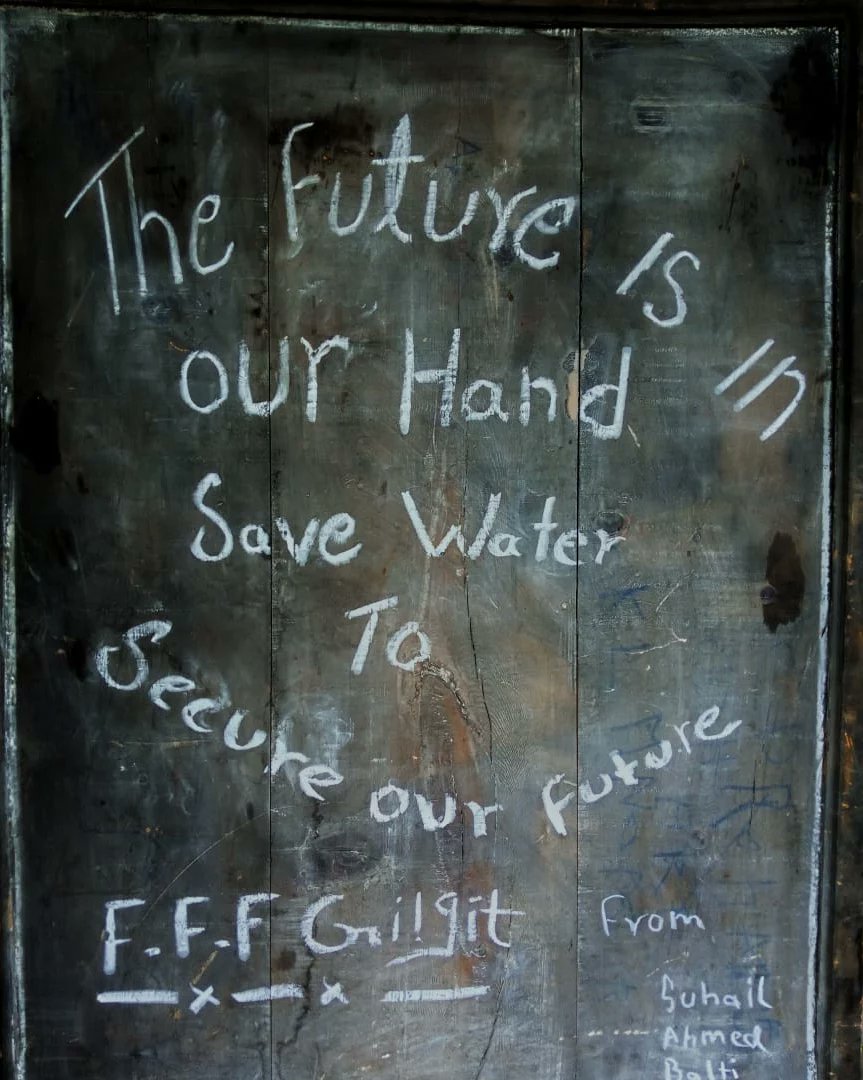 The Future Is In
our Hand
Save Water
To
Secure our Future
F.F.F Gilgit From
Suhail
Ahmed
Balti